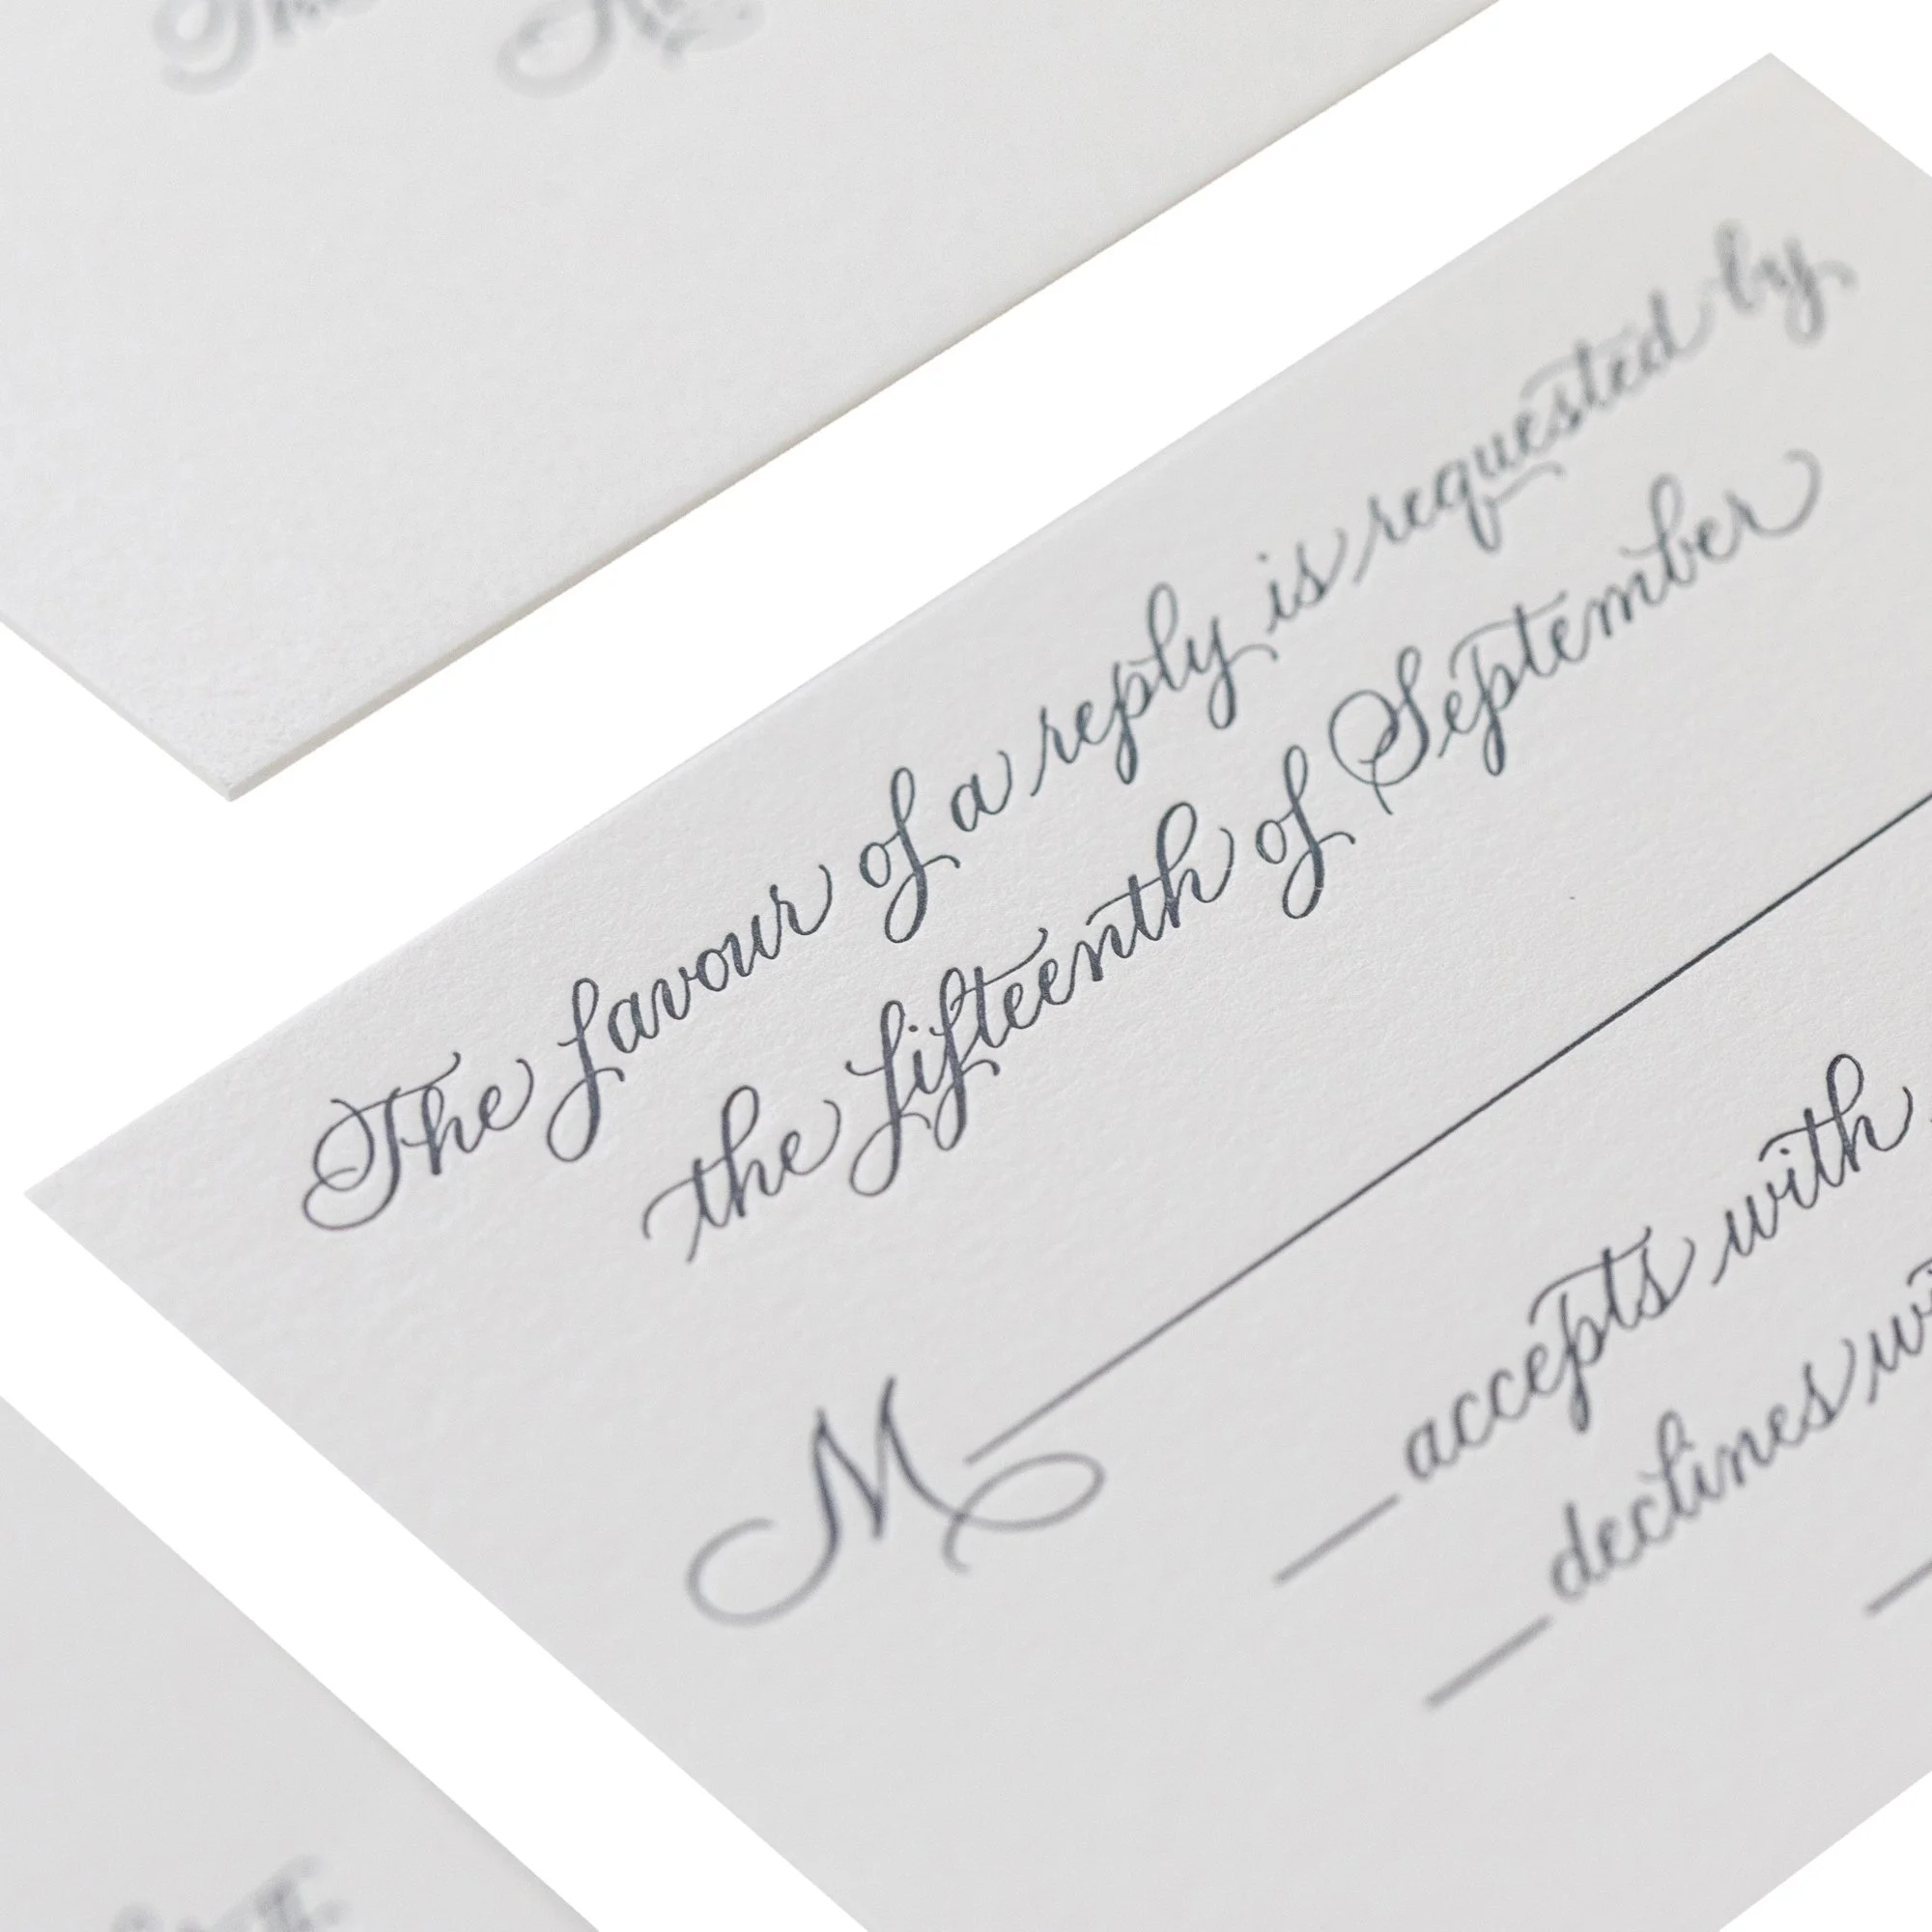 The favour of a reply is requested by
the fifteenth of September
M
accepts with
declines